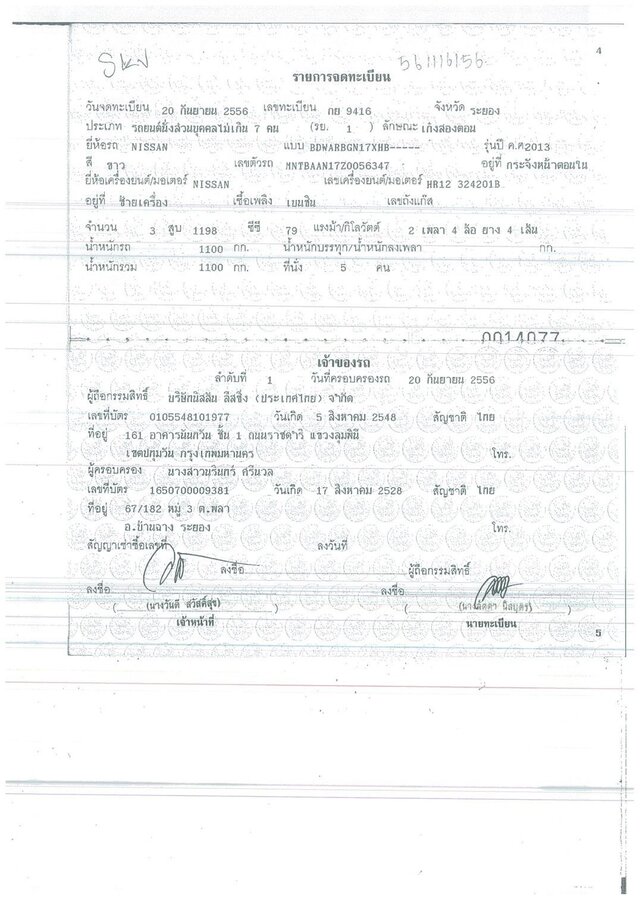 4
561116156
รายการจดทะเบียน
วันจดทะเบียน 20 กันยายน 2556 เลขทะเบียน กย 9416 จังหวัด ระยอง
ประเภท รถยนต์นั่งส่วนบุคคลไม่เกิน 7 คน (รย. 1 ) ลักษณะ เก๋งสองตอน
ยี่ห้อรถ NISSAN แบบ BDWARBGN17XHB----- รุ่นปี ค.ศ2013
สี ขาว เลขตัวรถ MNTBAAN17Z0056347 อยู่ที่ กระจังหน้าตอนใน
ยี่ห้อเครื่องยนต์/มอเตอร์ NISSAN เลขเครื่องยนต์/มอเตอร์ HR12 324201B
อยู่ที่ ซ้ายเครื่อง เชื้อเพลิง เบนซิน เลขถังแก๊ส
จำนวน 3 สูบ 1198 ซีซี 79 แรงม้า/กิโลวัตต์ 2 เพลา 4 ล้อ ยาง 4 เส้น
น้ำหนักรถ 1100 กก. น้ำหนักบรรทุก/น้ำหนักลงเพลา กก.
น้ำหนักรวม 1100 กก. ที่นั่ง 5 คน
0014077
เจ้าของรถ
ลำดับที่ 1 วันที่ครอบครองรถ 20 กันยายน 2556
ผู้ถือกรรมสิทธิ์ บริษัทนิสสัน ลีสซิ่ง (ประเทศไทย) จำกัด
เลขที่บัตร 0105548101977 วันเกิด 5 สิงหาคม 2548 สัญชาติ ไทย
ที่อยู่ 161 อาคารนันทวัน ชั้น 1 ถนนราชดำริ แขวงลุมพินี
เขตปทุมวัน กรุงเทพมหานคร โทร.
ผู้ครอบครอง นางสาวนรินทร์ ศรีนวล
เลขที่บัตร 1650700009381 วันเกิด 17 สิงหาคม 2528 สัญชาติ ไทย
ที่อยู่ 67/182 หมู่ 3 ต.พลา
อ.บ้านฉาง ระยอง โทร.
สัญญาเช่าซื้อเลขที่ ลงวันที่
ลงชื่อ ผู้ถือกรรมสิทธิ์
ลงชื่อ ลงชื่อ
(นางวันดี สวัสดิ์สุข)
เจ้าหน้าที่ นายทะเบียน
5